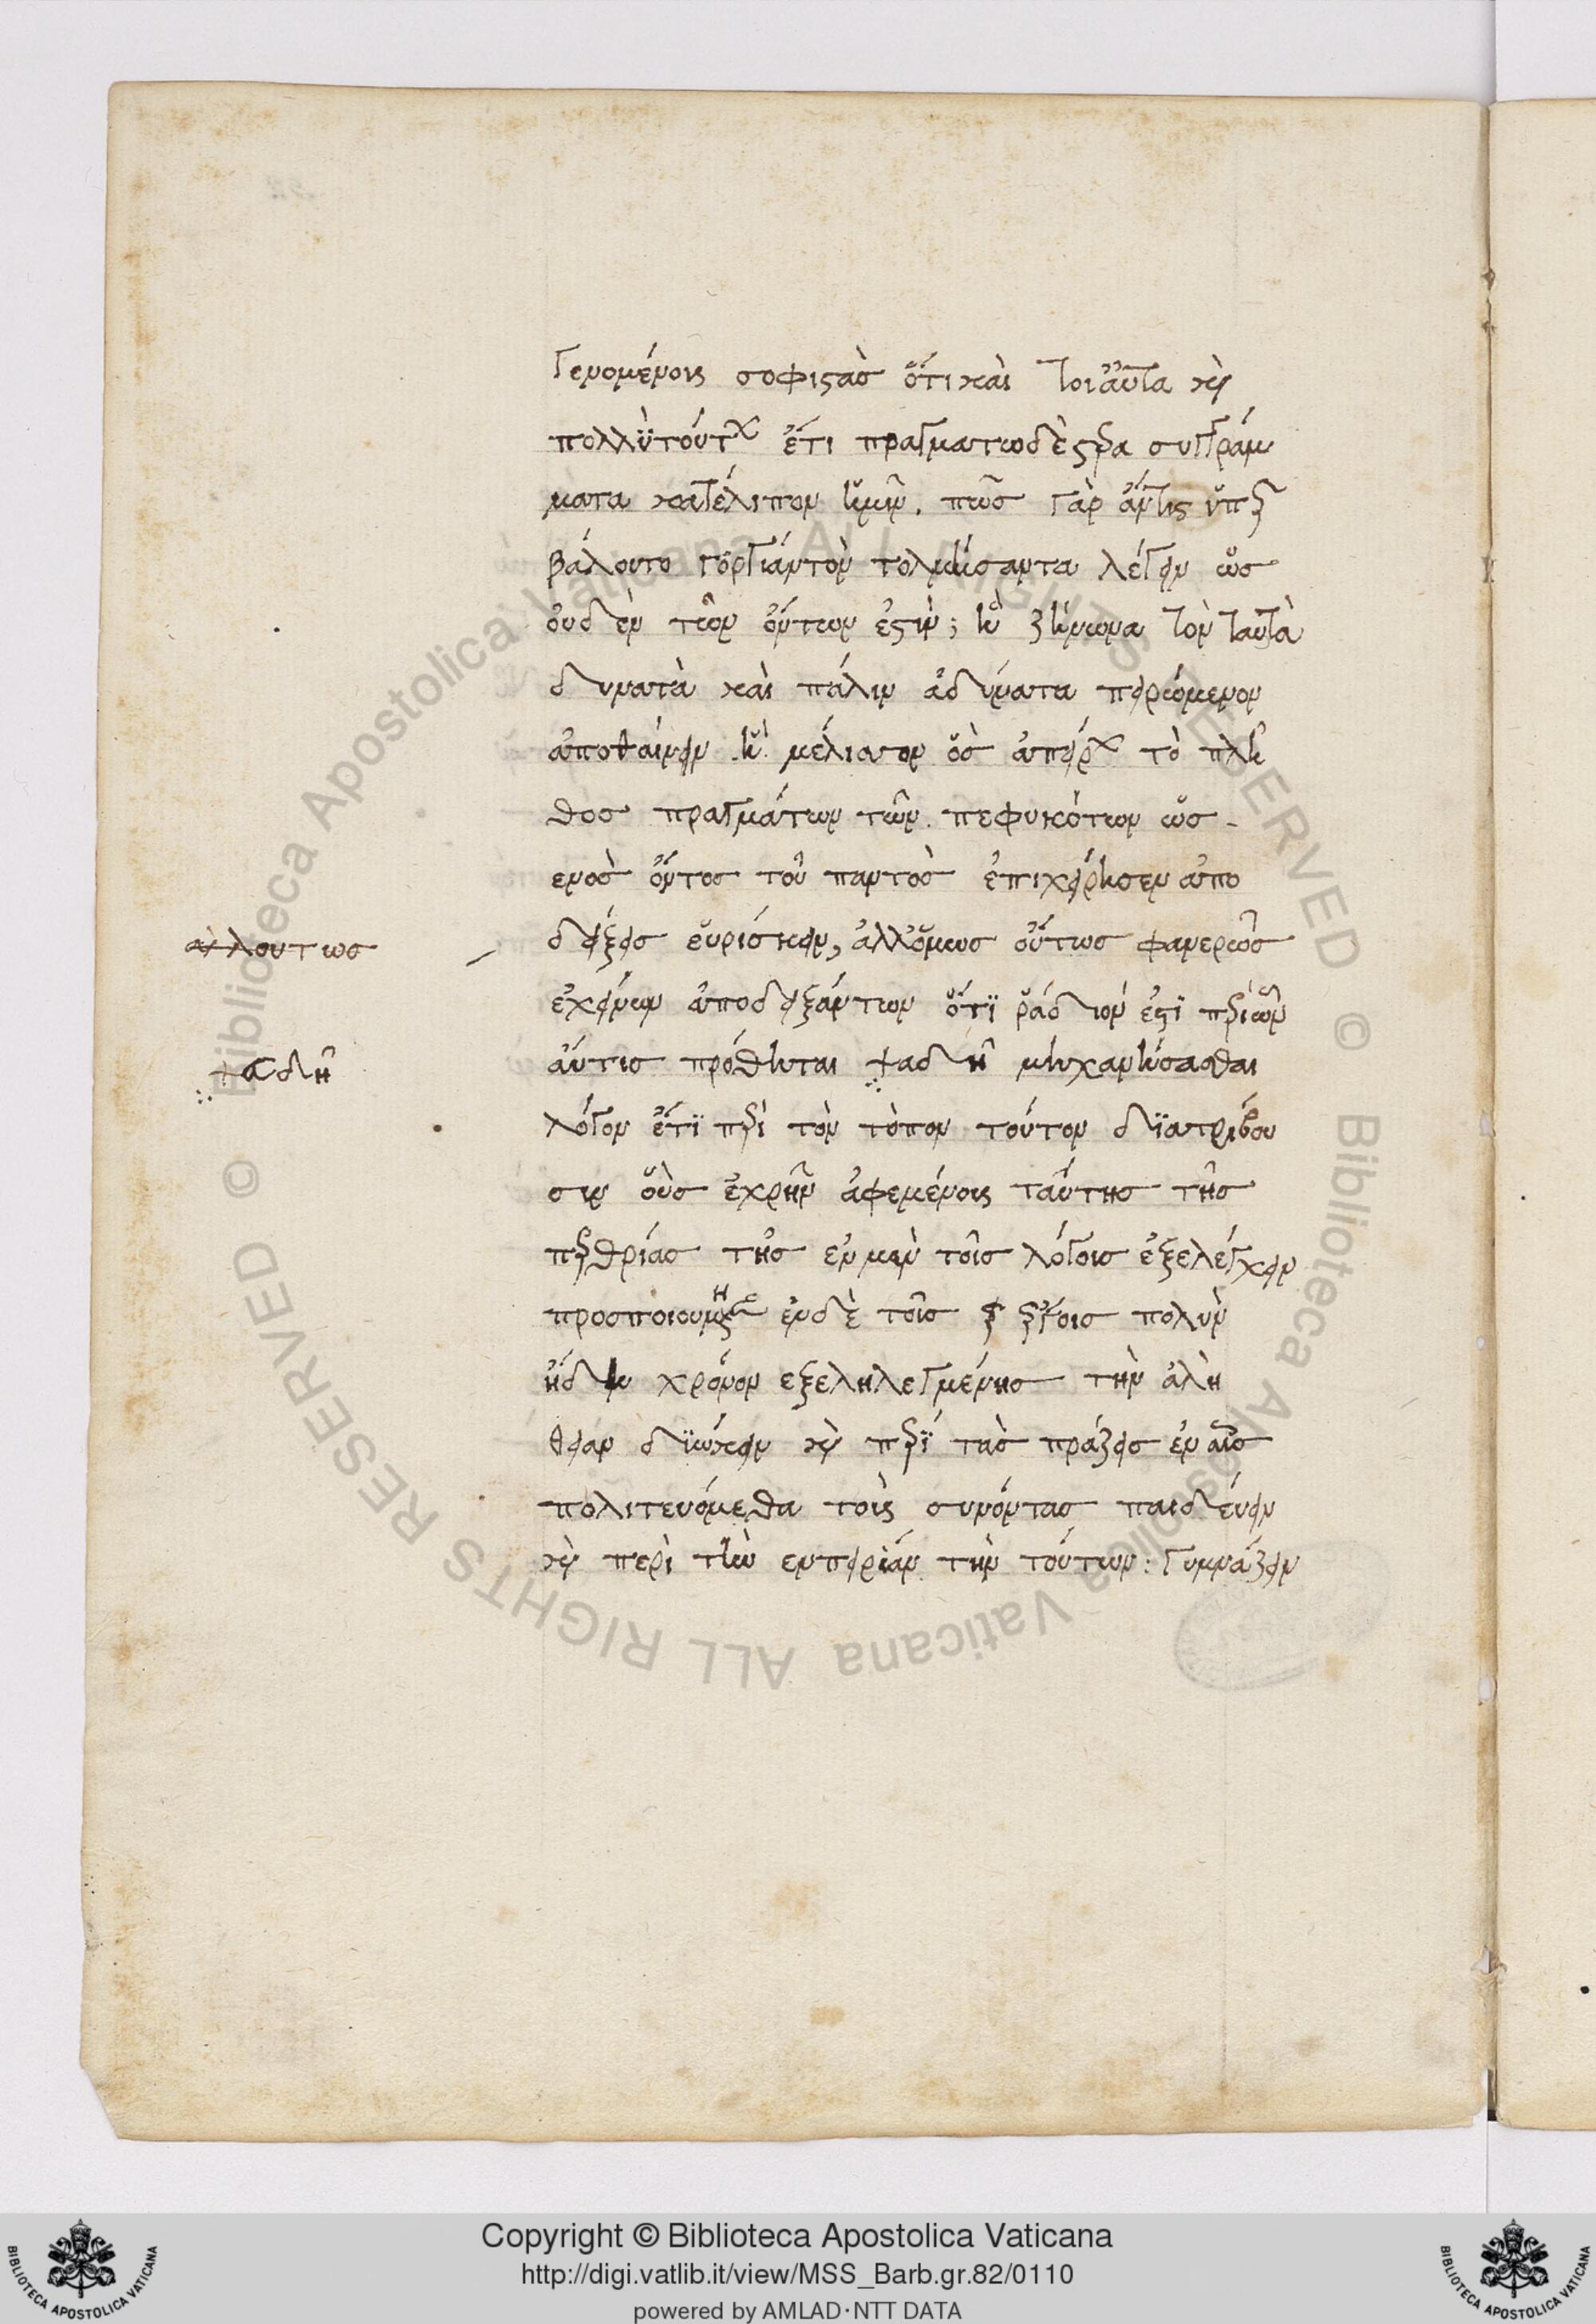 γενομένους σοφιστὰς ὅτι καὶ τοιαῦτα καὶ
πολλῢ τούτων ἔτι πραγματωδὲστερα συγγράμ
ματα κατέλιπον ἡμῖν. πῶς γὰρ ἄντις ὕπερ
βάλοιτο γοργίαν τὸν τολμήσαντα λέγειν ὡς
οὐδὲν τῶν ὄντων ἐστιν; ἢ ζήνωνα τὸν ταυτὰ
δυνατὰ καὶ πάλιν ἀδύνατα πειρώμενον
ἀποφαίνειν. ἢ μέλισσον ὃς ἀπείρων τὸ πλῆ
θος πραγμάτων τῶν πεφυκότων ὡς
ενὸς ὄντος τοῦ παντὸς ἐπιχείρησεν ἀπο
δείξεις εὑρίσκειν, ἀλλ ὅμως οὕτως φανερῶς
ἐκείνων ἀποδειξάντων ὅτϊ ῥάδιόν ἐστϊ περὶ ὧν
ἄν τις πρόθηται ψαδῆ μηχανήσασθαι
λόγον ἔτϊ περὶ τὸν τὸπον τούτον δϊατρίβου
σιν οὓς ἐχρῆν ἀφεμένους ταύτης τῆς
περθρίας τῆς εν μὲν τοῖς λόγοις ἐξελέγχειν
προσποιουμένης ἐν δὲ τοῖς ἔργοις πολὺν
ἤδη χρόνον εξεληλεγμένης τὴν ἀλή
θειαν δϊώκειν καὶ περϊ τὰς πράξεις ἐν αἷς
πολιτευόμεθα τοὺς συνόντας παιδεύειν
καὶ περὶ τὴν εμπειρίαν τὴν τούτων: γυμνάζειν
αλουτως
ψαδῆ
Copyright © Biblioteca Apostolica Vaticana
http://digi.vatlib.it/view/MSS_Barb.gr.82/0110
powered by AMLAD·NTT DATA
BIBLIOTECA APOSTOLICA VATICANA
BIBLIOTECA APOSTOLICA VATICANA
© Biblioteca Apostolica Vaticana ALL RIGHTS RESERVED © Biblioteca Apostolica Vaticana ALL RIGHTS RESERVED